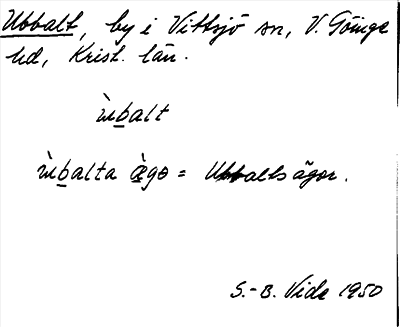 Ubbalt, by i Vittsjö sn, V. Göinge
hd, Krist. län.
ùbalt
ùbalta àgo = Ubbaltsägor.
S.-B. Vide 1950